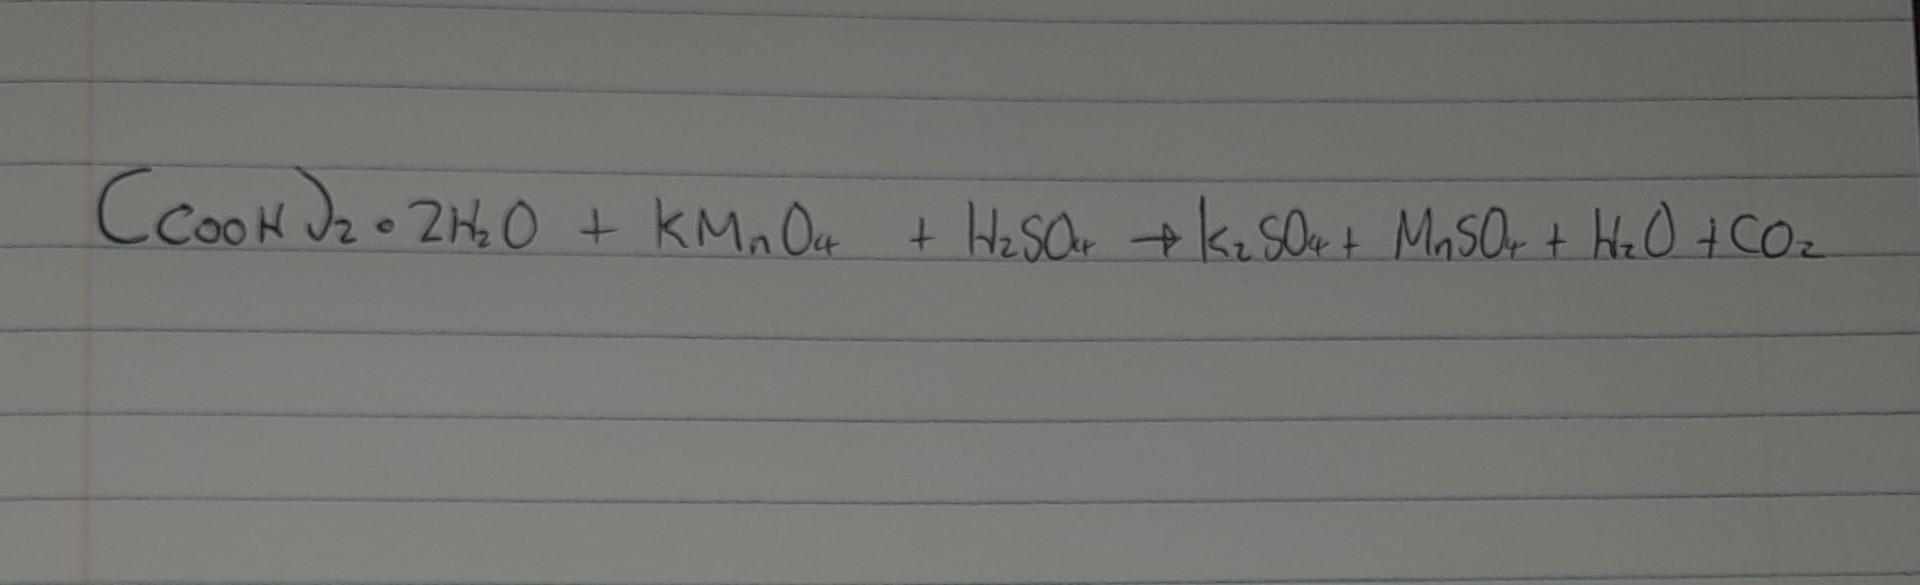 (COOH)₂•2H₂O + KMnO₄ + H₂SO₄ → K₂SO₄ + MnSO₄ + H₂O + CO₂